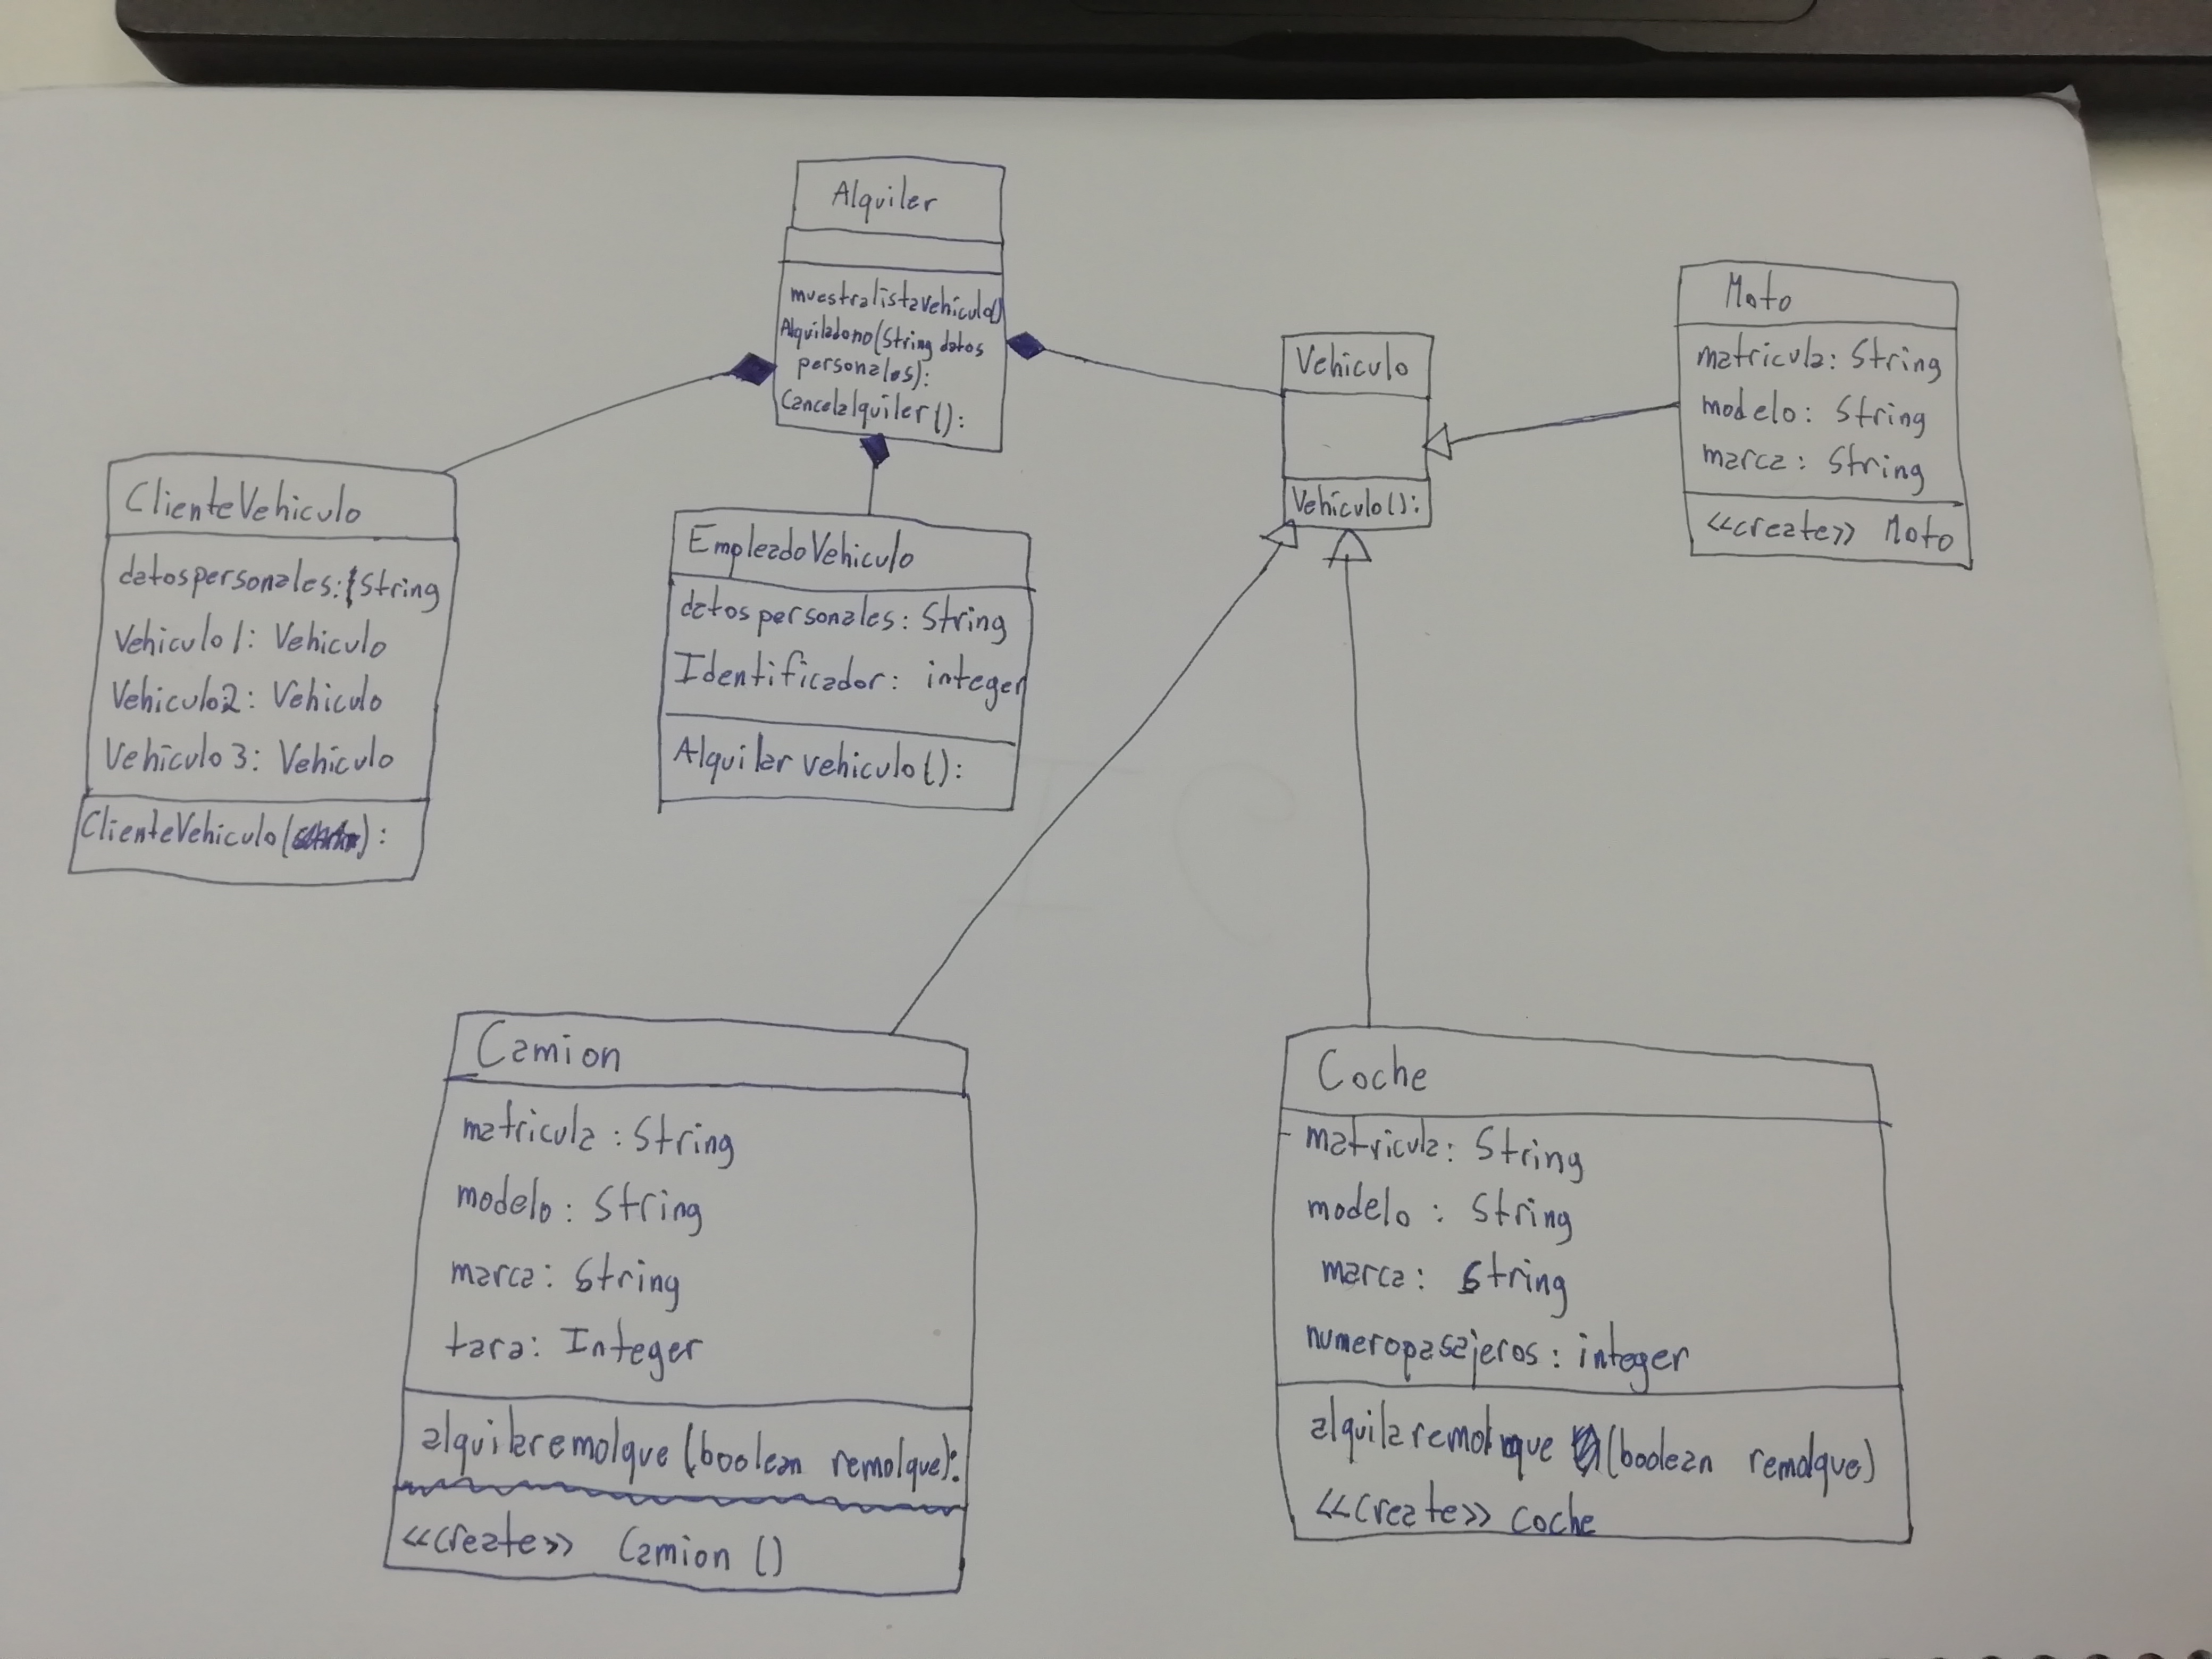 Alquiler
muestralistavehiculo()
Alquiladono(String datos
personales):
Cancelalquiler():
Vehiculo
Vehiculo():
Moto
matricula: String
modelo: String
marca: String
<<create>> Moto
ClienteVehiculo
datospersonales: String
Vehiculo1: Vehiculo
Vehiculo2: Vehiculo
Vehiculo3: Vehiculo
ClienteVehiculo():
EmpleadoVehiculo
datospersonales: String
Identificador: integer
Alquilar vehiculo():
Camion
matricula: String
modelo: String
marca: String
tara: Integer
alquilaremolque (boolean remolque):
<<create>> Camion ()
Coche
matricula: String
modelo: String
marca: String
numeropasajeros: integer
alquilaremolque (boolean remolque)
<<create>> coche